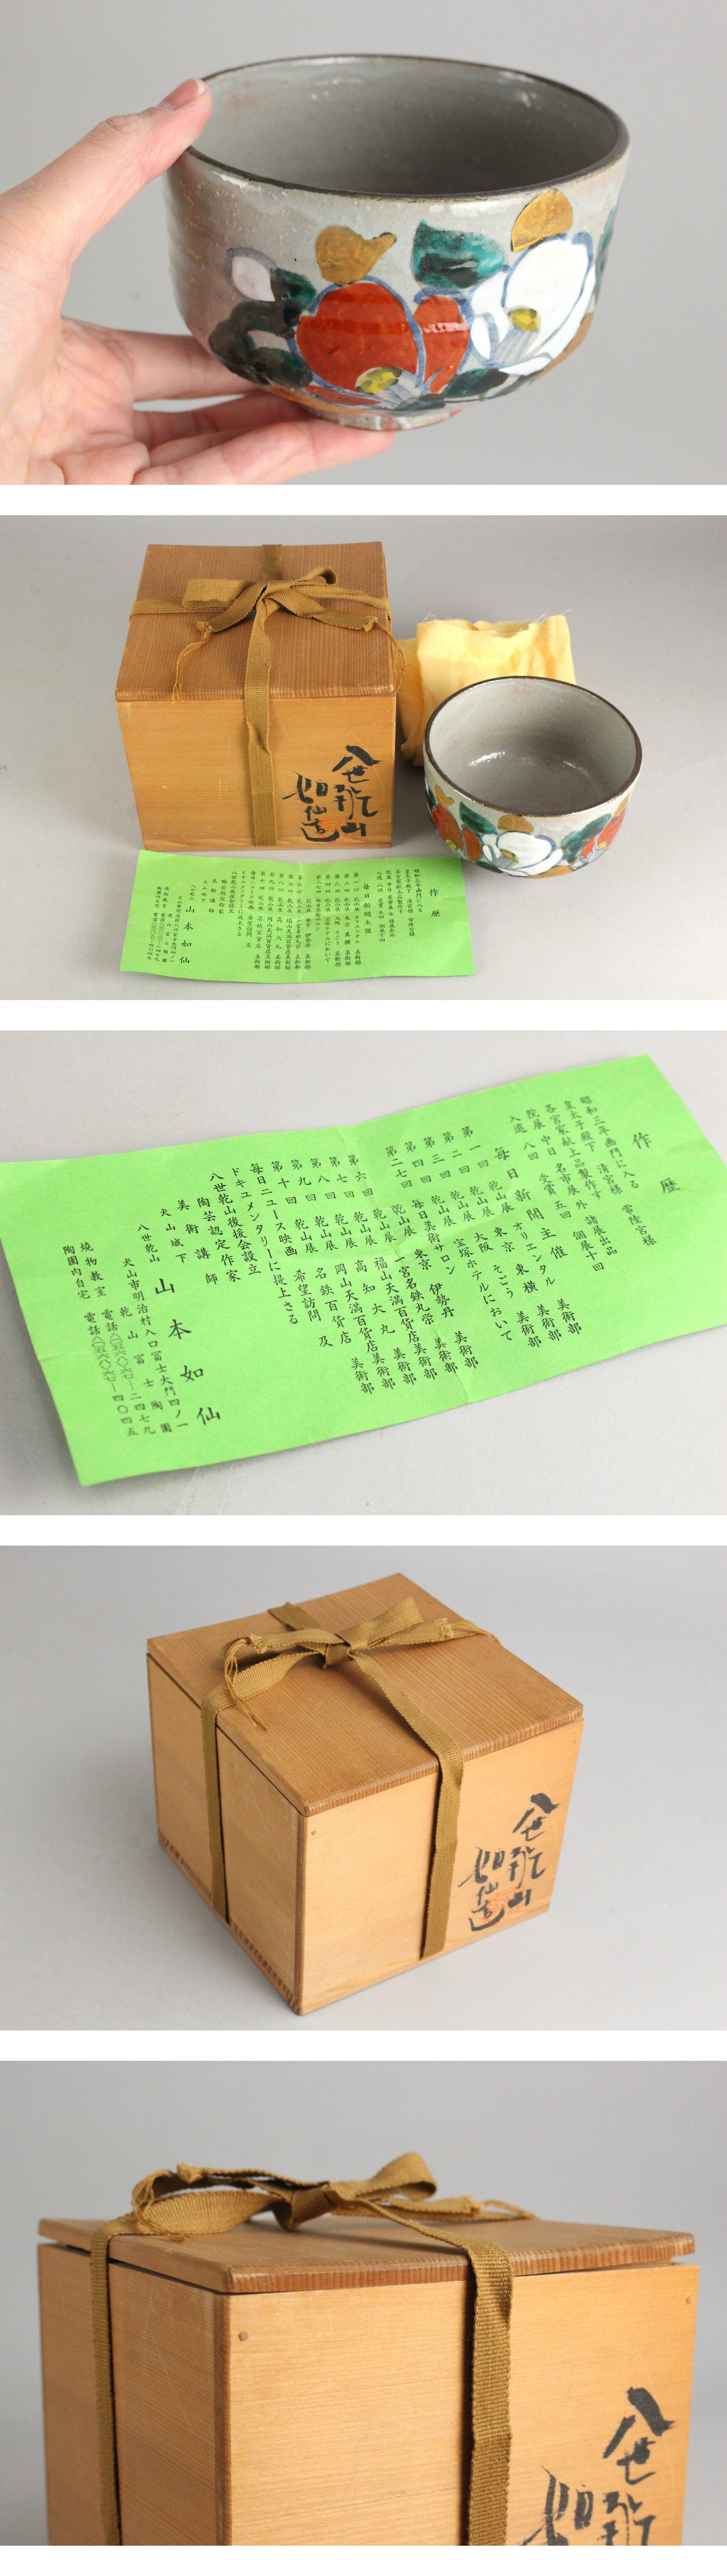 八世乾山
如仙造
作歴
昭和三年画門に入る
皇太子殿下 清宮様 常陸宮様
各宮家献上品製作す
院展 中日 名市展 外 諸展出品
入選 八回 受賞 五回 個展十回
毎日新聞主催
第一回 乾山展 オリエンタル 美術部
第二回 乾山展 東京 東横 美術部
第三回 乾山展 大阪 そごう 美術部
第四回 乾山展 宝塚ホテルにおいて
第二七回 毎日美術サロン
乾山展 東京 伊勢丹 美術部
乾山展 一宮名鉄丸栄 美術部
第六回 乾山展 福山天満百貨店美術部
第七回 乾山展 高知大丸 美術部
第八回 乾山展 岡山天満百貨店美術部
第九回 乾山展 名鉄百貨店 美術部
第十回 乾山展 希望訪問 及
毎日ニュース映画
ドキュメンタリーに提上さる
八世乾山後援会設立
陶芸認定作家
美術講師
犬山城下
八世乾山 山本如仙
犬山市明治村入口富士大門四ノ一
乾山冨士陶園
焼物教室 電話〇五六八〇六七―二四七九
陶園内自宅 電話〇五六八〇六七―一四〇四五
八世乾山
如仙造
八世乾
如